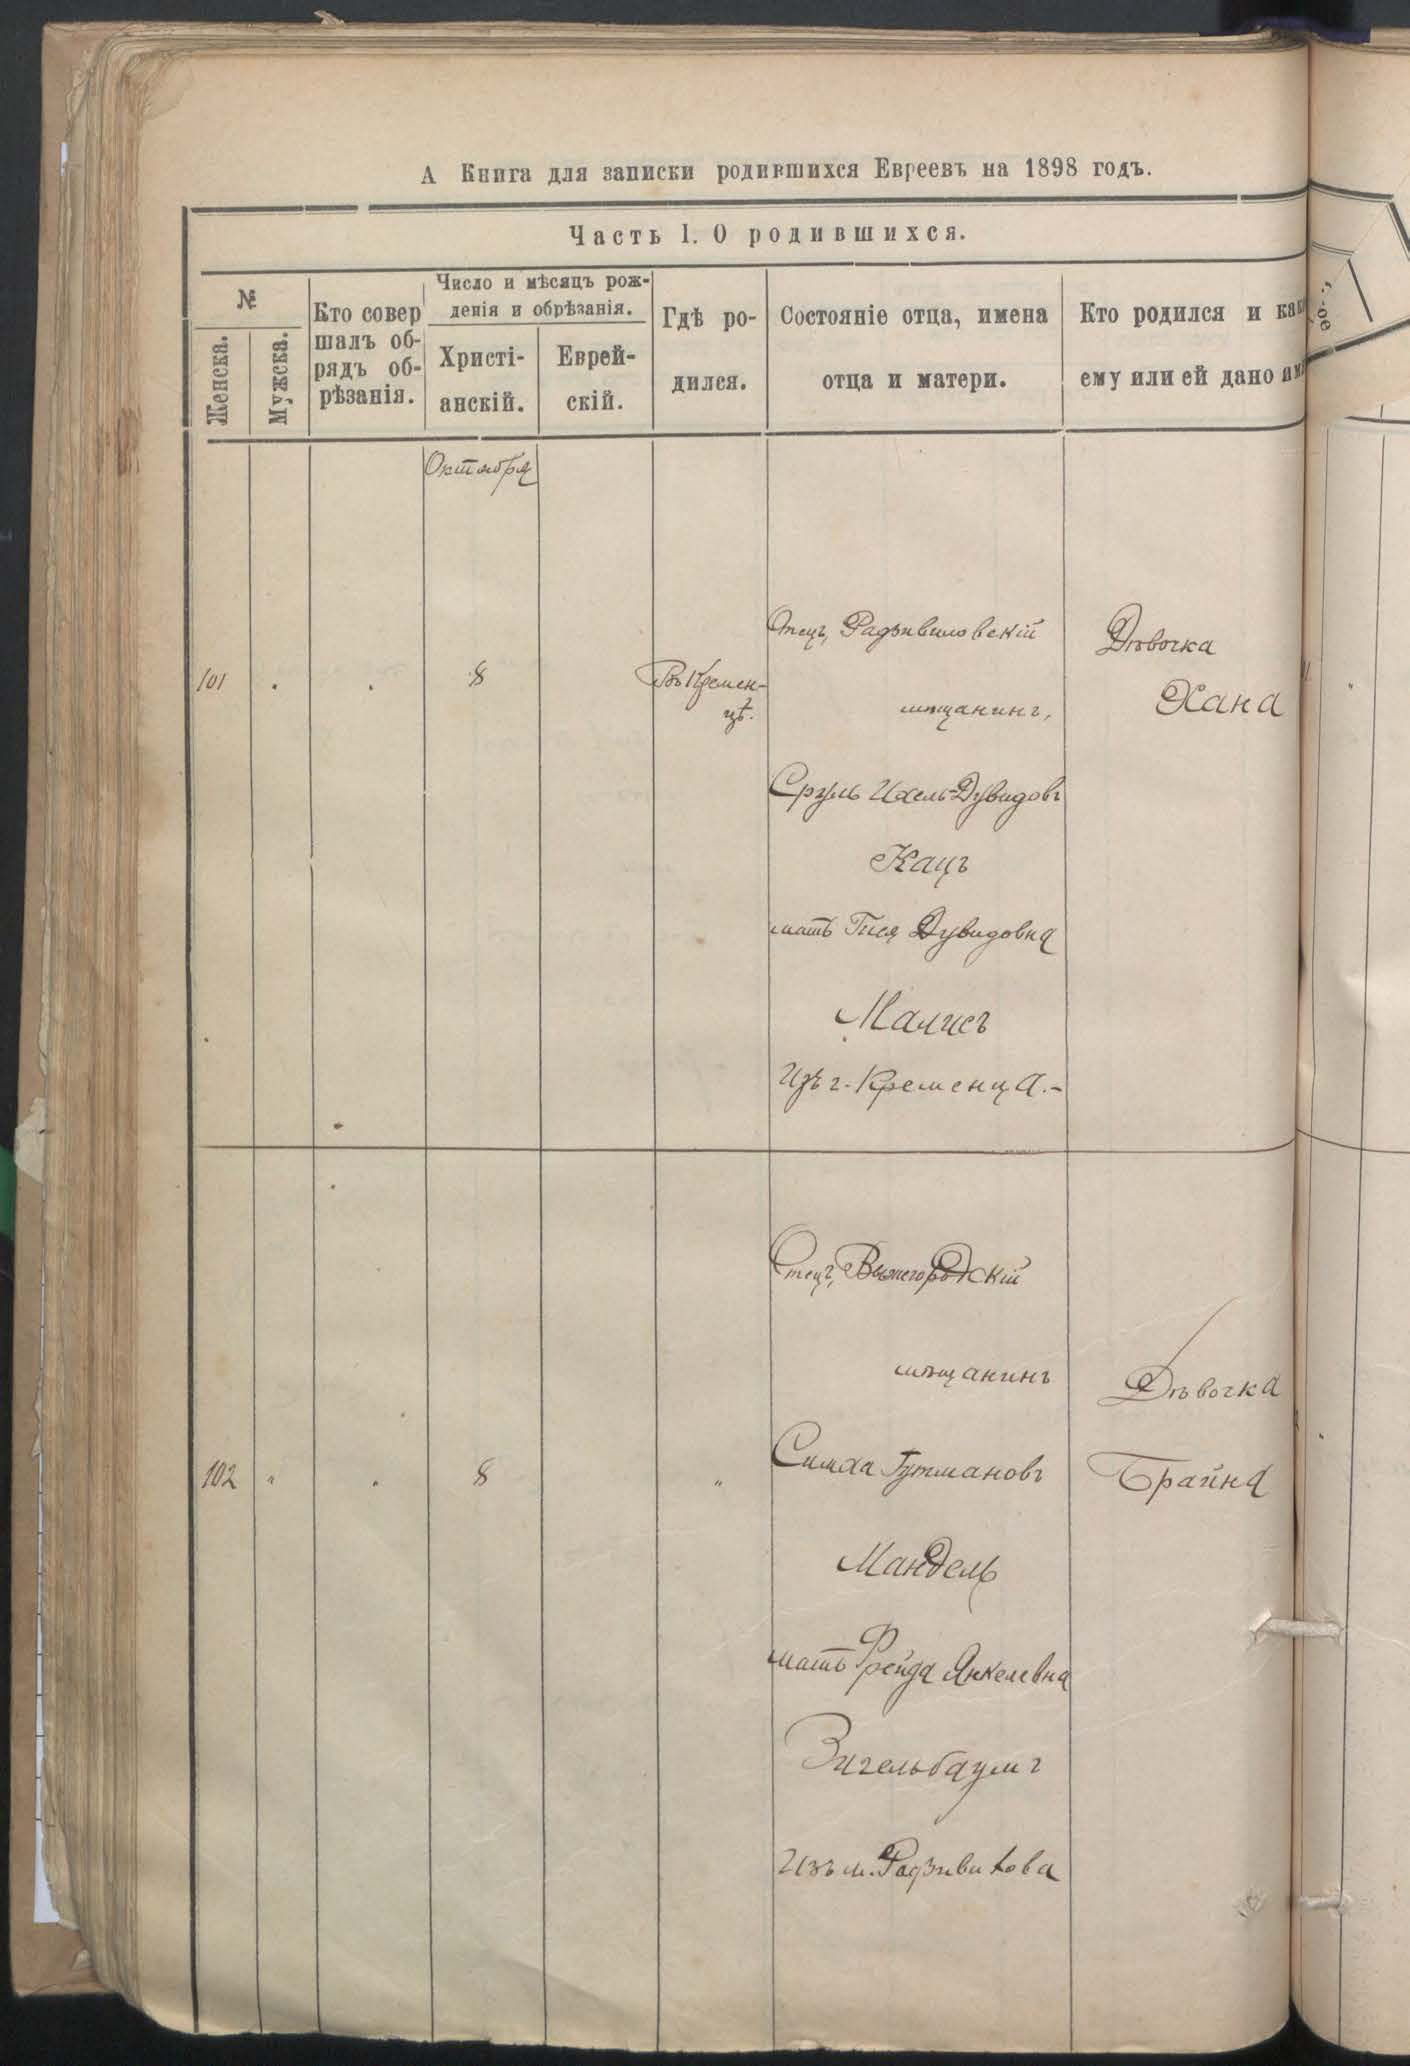 А Книга для записки родившихся Евреевъ на 1898 годъ.
Часть 1. О родившихся.
№
Женска.
Мужска.
Кто совер
шалъ об-
рядъ об-
рѣзанія.
Число и мѣсяцъ рож-
денія и обрѣзанія.
Христі-
анскій.
Еврей-
скій.
Гдѣ ро-
дился.
Состояніе отца, имена
отца и матери.
Кто родился и как
ему или ей дано им
Октября
101
8
Въ Кремен-
цѣ.
Отецъ, Радзивиловскій
мѣщанинъ,
Сруль Ихель-Дувидовъ
Кацъ
мать Гися Дувидовна
Малисъ
Изъ г. Кременца.-
Дѣвочка
Хана
102
"
"
8
"
Отецъ, Вышегородскій
мѣщанинъ
Симха Гутмановъ
Мандель
мать Фрейда Янкелевна
Зигельбаумъ
Изъ м. Радзивилова
Дѣвочка
Брайна